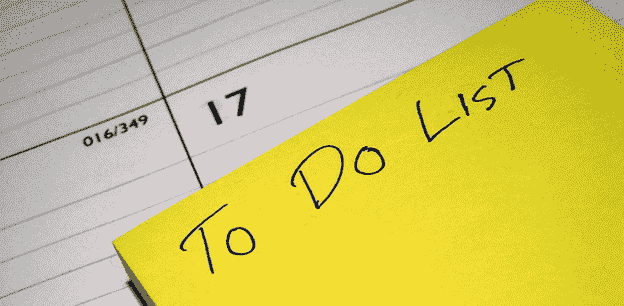 016/349
17
To Do List